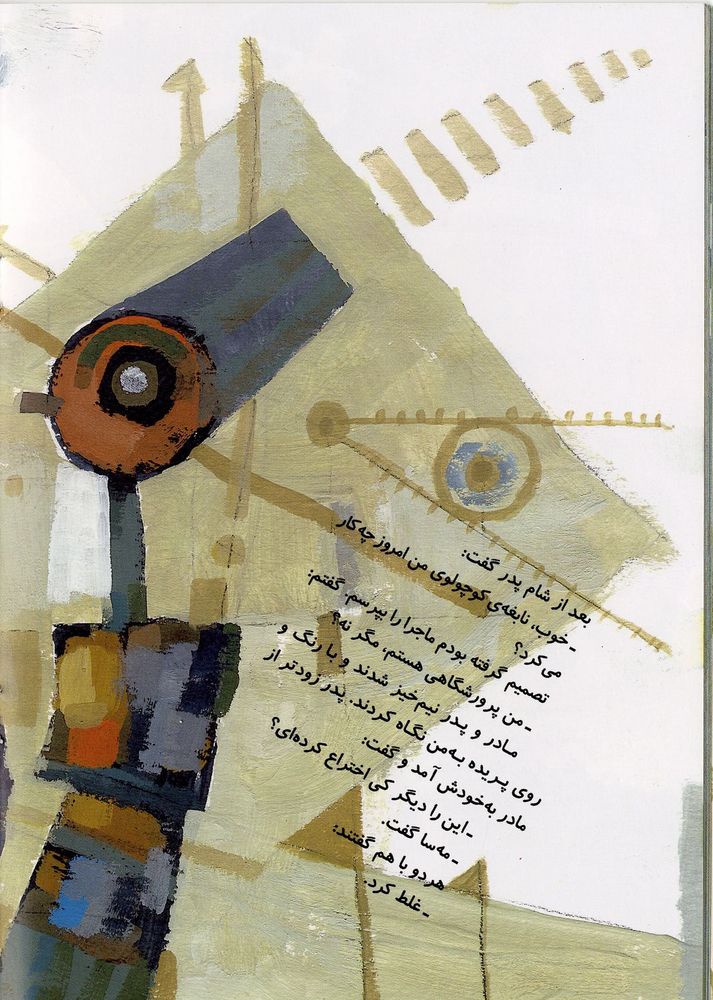 بعد از شام پدر گفت:
-خوب، نابغه‌ی کوچولوی من امروز چه‌کار
می‌کرد؟
تصمیم گرفته بودم ماجرا را بپرسم. گفتم:
-من پرورشگاهی هستم، مگر نه؟
مادر و پدر نیم‌خیز شدند و با رنگ و
روی پریده به‌من نگاه کردند. پدر زودتر از
مادر به‌خودش آمد و گفت:
-این را دیگر کی اختراع کرده‌ای؟
-مه‌سا گفت.
هر دو با هم گفتند:
-غلط کرد.